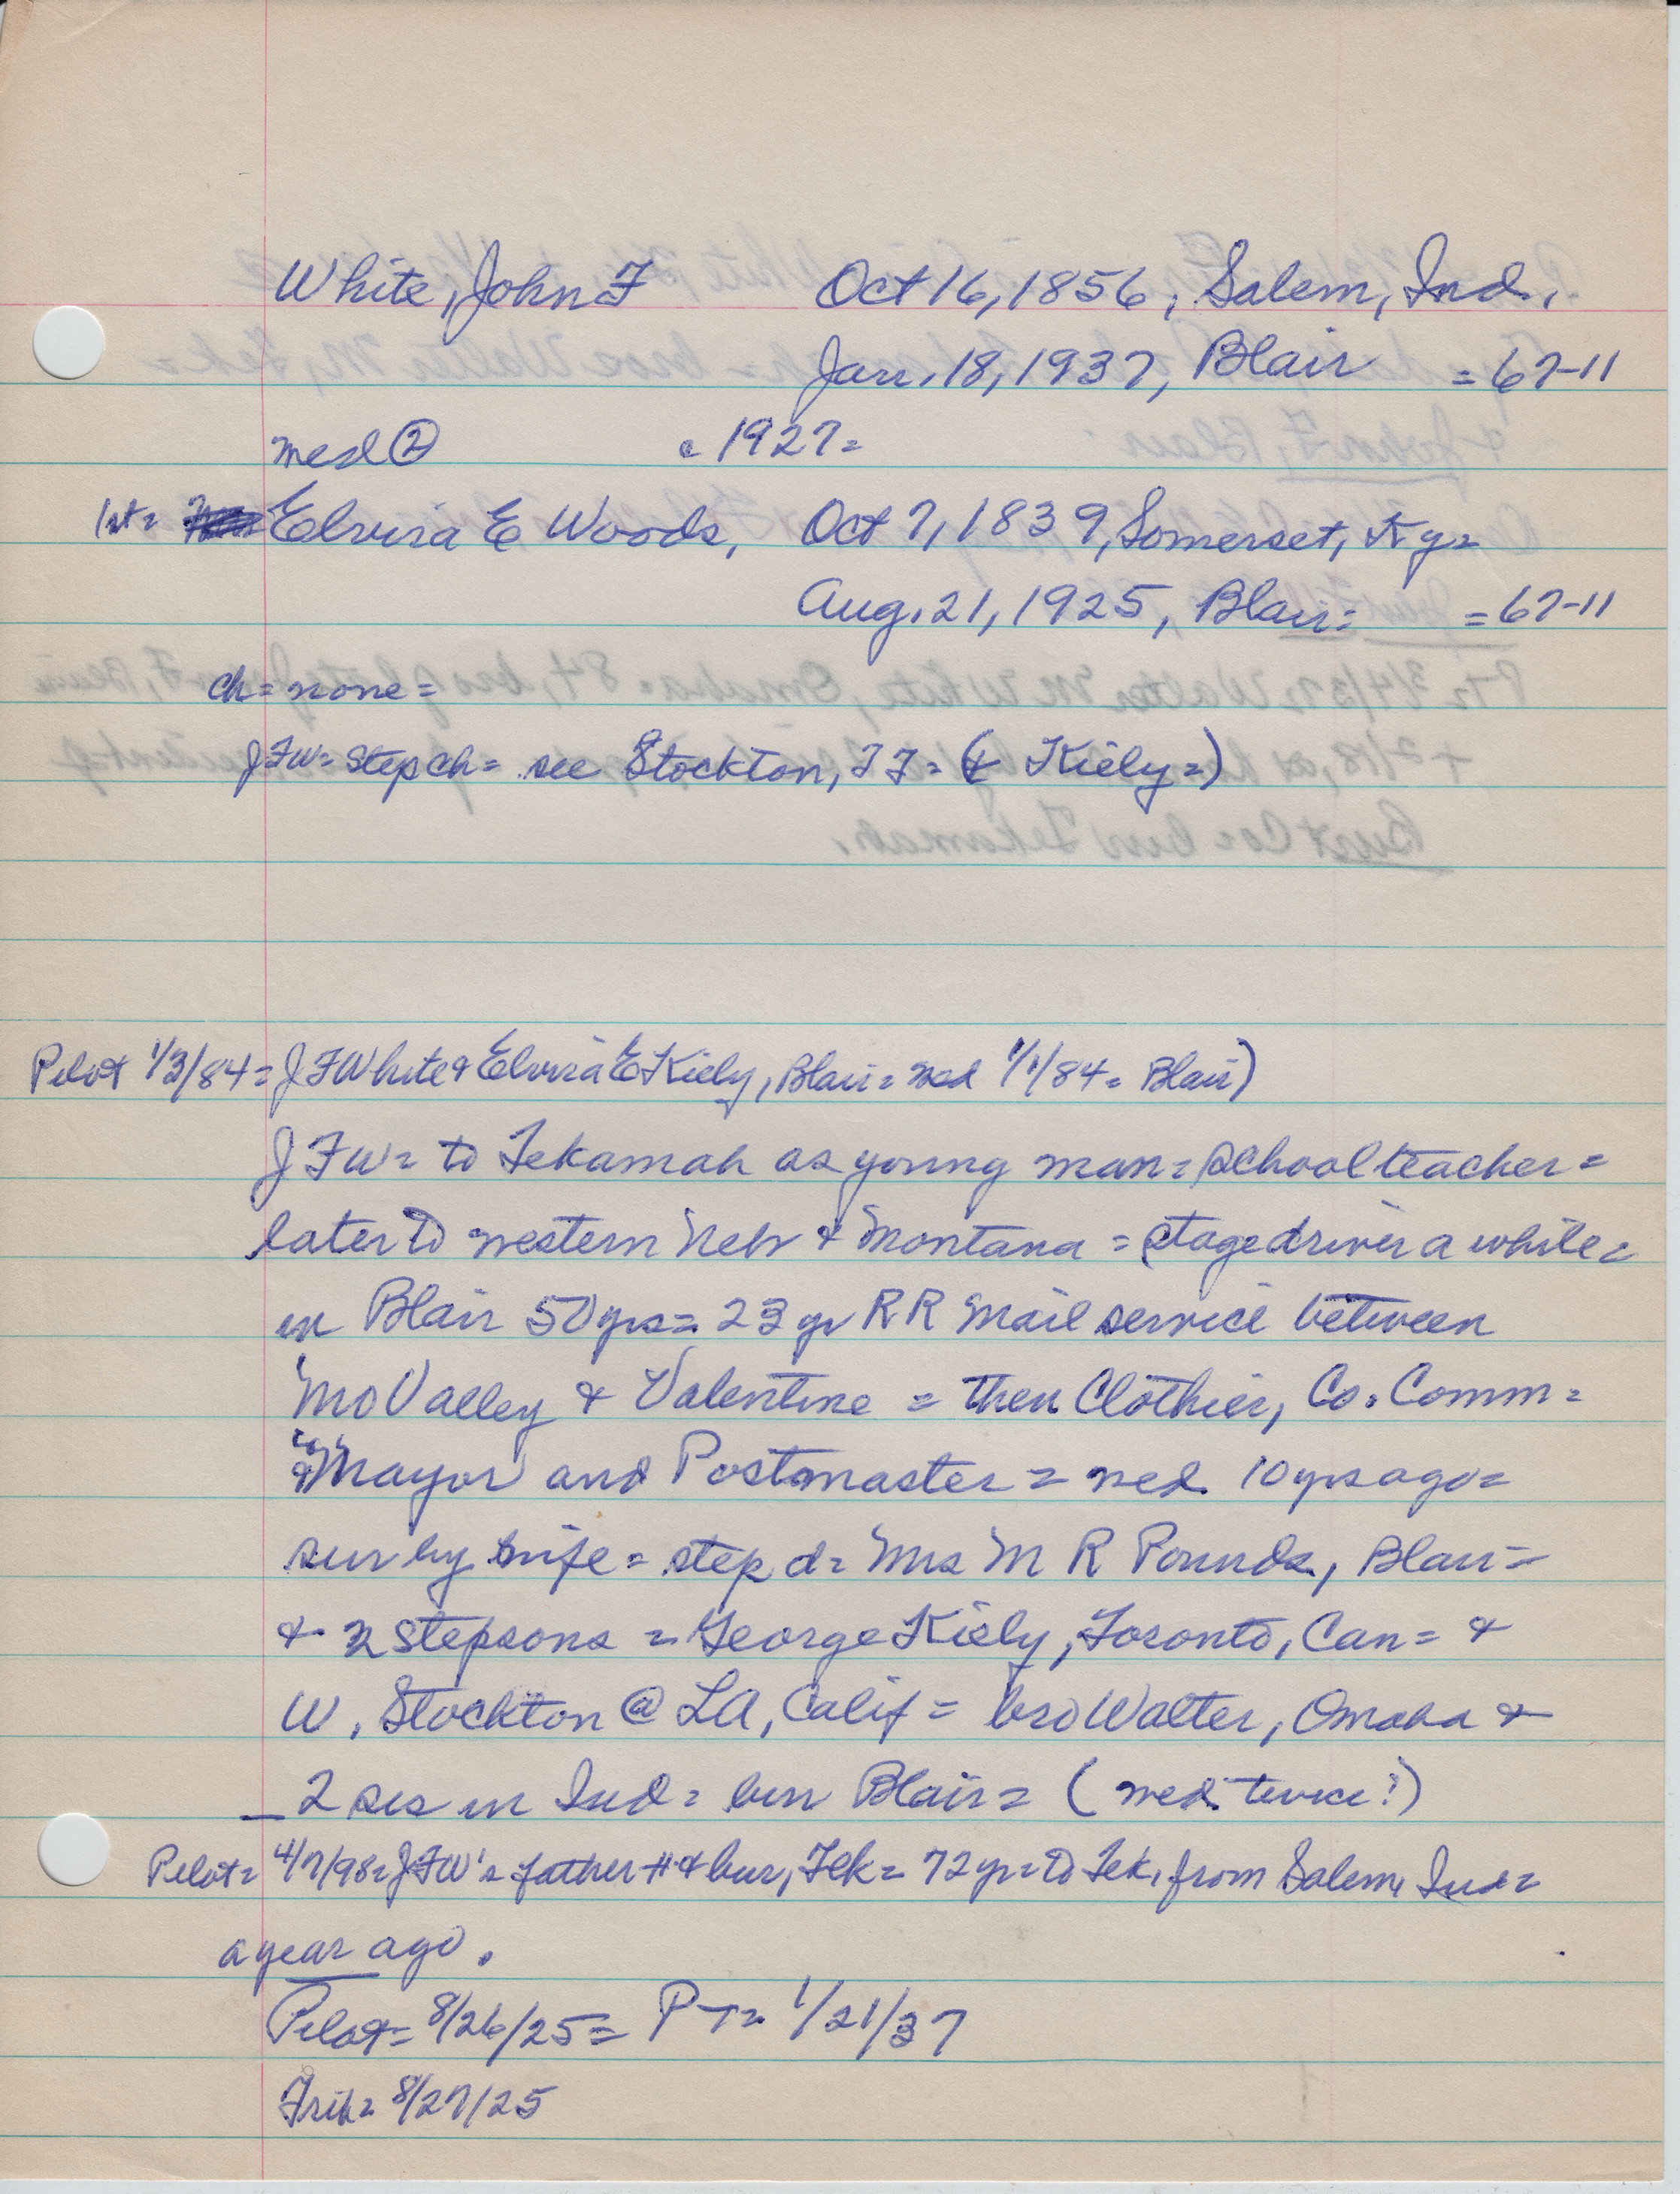 White, John F Oct 16, 1856, Salem, Ind.,
Jan. 18, 1937, Blair = 67-11
med ② c 1927=
1st= Elvira E Woods, Oct 7, 1839, Somerset, Ky=
Aug. 21, 1925, Blair= = 67-11
ch= none=
JFW= step ch= see Stockton, J F= (& Kiely=)
Pilot 1/3/84= J F White & Elvira E Kiely, Blair= med 1/1/84= Blair)
J F W= to Tekamah as young man= school teacher=
later to western Neb & Montana = stage driver a while=
in Blair 50 yrs= 23 yr R R Mail service between
Mo Valley & Valentine = then Clothier, Co. Comm=
& Mayor and Postmaster = med. 10 yrs ago=
sur by wife= step d= Mrs M R Pounds, Blair=
& 2 stepsons = George Kiely, Toronto, Can= &
W, Stockton @ LA, Calif = bro Walter, Omaha &
2 sis in Ind= bur Blair= (med. twice?)
Pilot= 4/7/98= JFW's father & bur, Tek= 72 yr= to Tek, from Salem, Ind=
a year ago.
Pilot= 8/26/25= P T= 1/21/37
Trib= 8/27/25